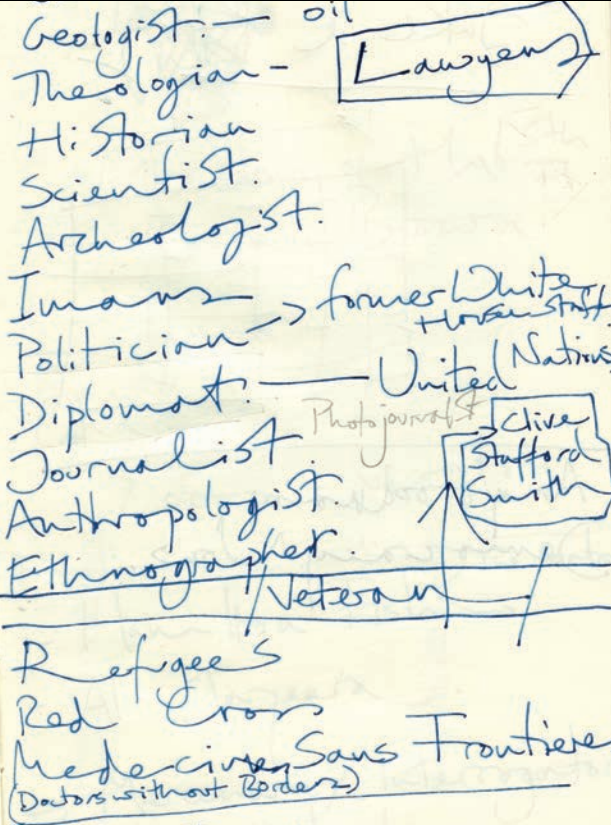 Geologist. — oil
Lawyers
Theologian -
Historian
Scientist.
Archeologist.
Imans
Politician -> former White
House Staff
Diplomat. — United Nations
Photojournalist
Journalist.
Clive
Stafford
Smith
Anthropologist.
Ethnographer.
Veteran
Refugees
Red Cross
Medecines Sans Frontiere
(Doctors without Borders)